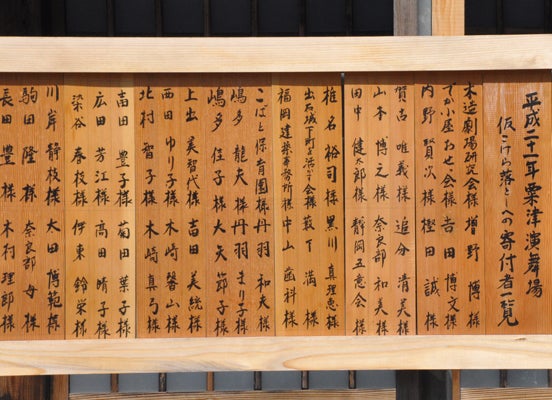 平成二十一年粟津演舞場
仮こけら落としへの寄付者一覧
木造劇場研究会様 増野 博様
でか小屋わせ会様 吉田 博文様
内野 賢次様 樫田 誠様
賀古 唯義様 追分 清美様
山本 博之様 奈良部 和美様
田中 健太郎様 静岡五意会様
椎名 裕司様 黒川 真理恵様
出石城下町を活かす会様 薮下 満様
福岡建築事務所様 中山 歯科様
こばと保育園様 丹羽 和夫様
嶋多 龍夫様 丹羽 まり子様
嶋多 佳子様 大矢 節子様
上出 美智代様 吉田 美統様
西田 ゆり子様 木崎 馨山様
北村 智子様 木崎 真弓様
吉田 豊子様 菊田 葉子様
広田 芳江様 高田 晴子様
染谷 春枝様 伊東 鈴栄様
川岸 静枝様 太田 博範様
駒田 隆様 奈良部 母様
長田 豊様 木村 理郎様